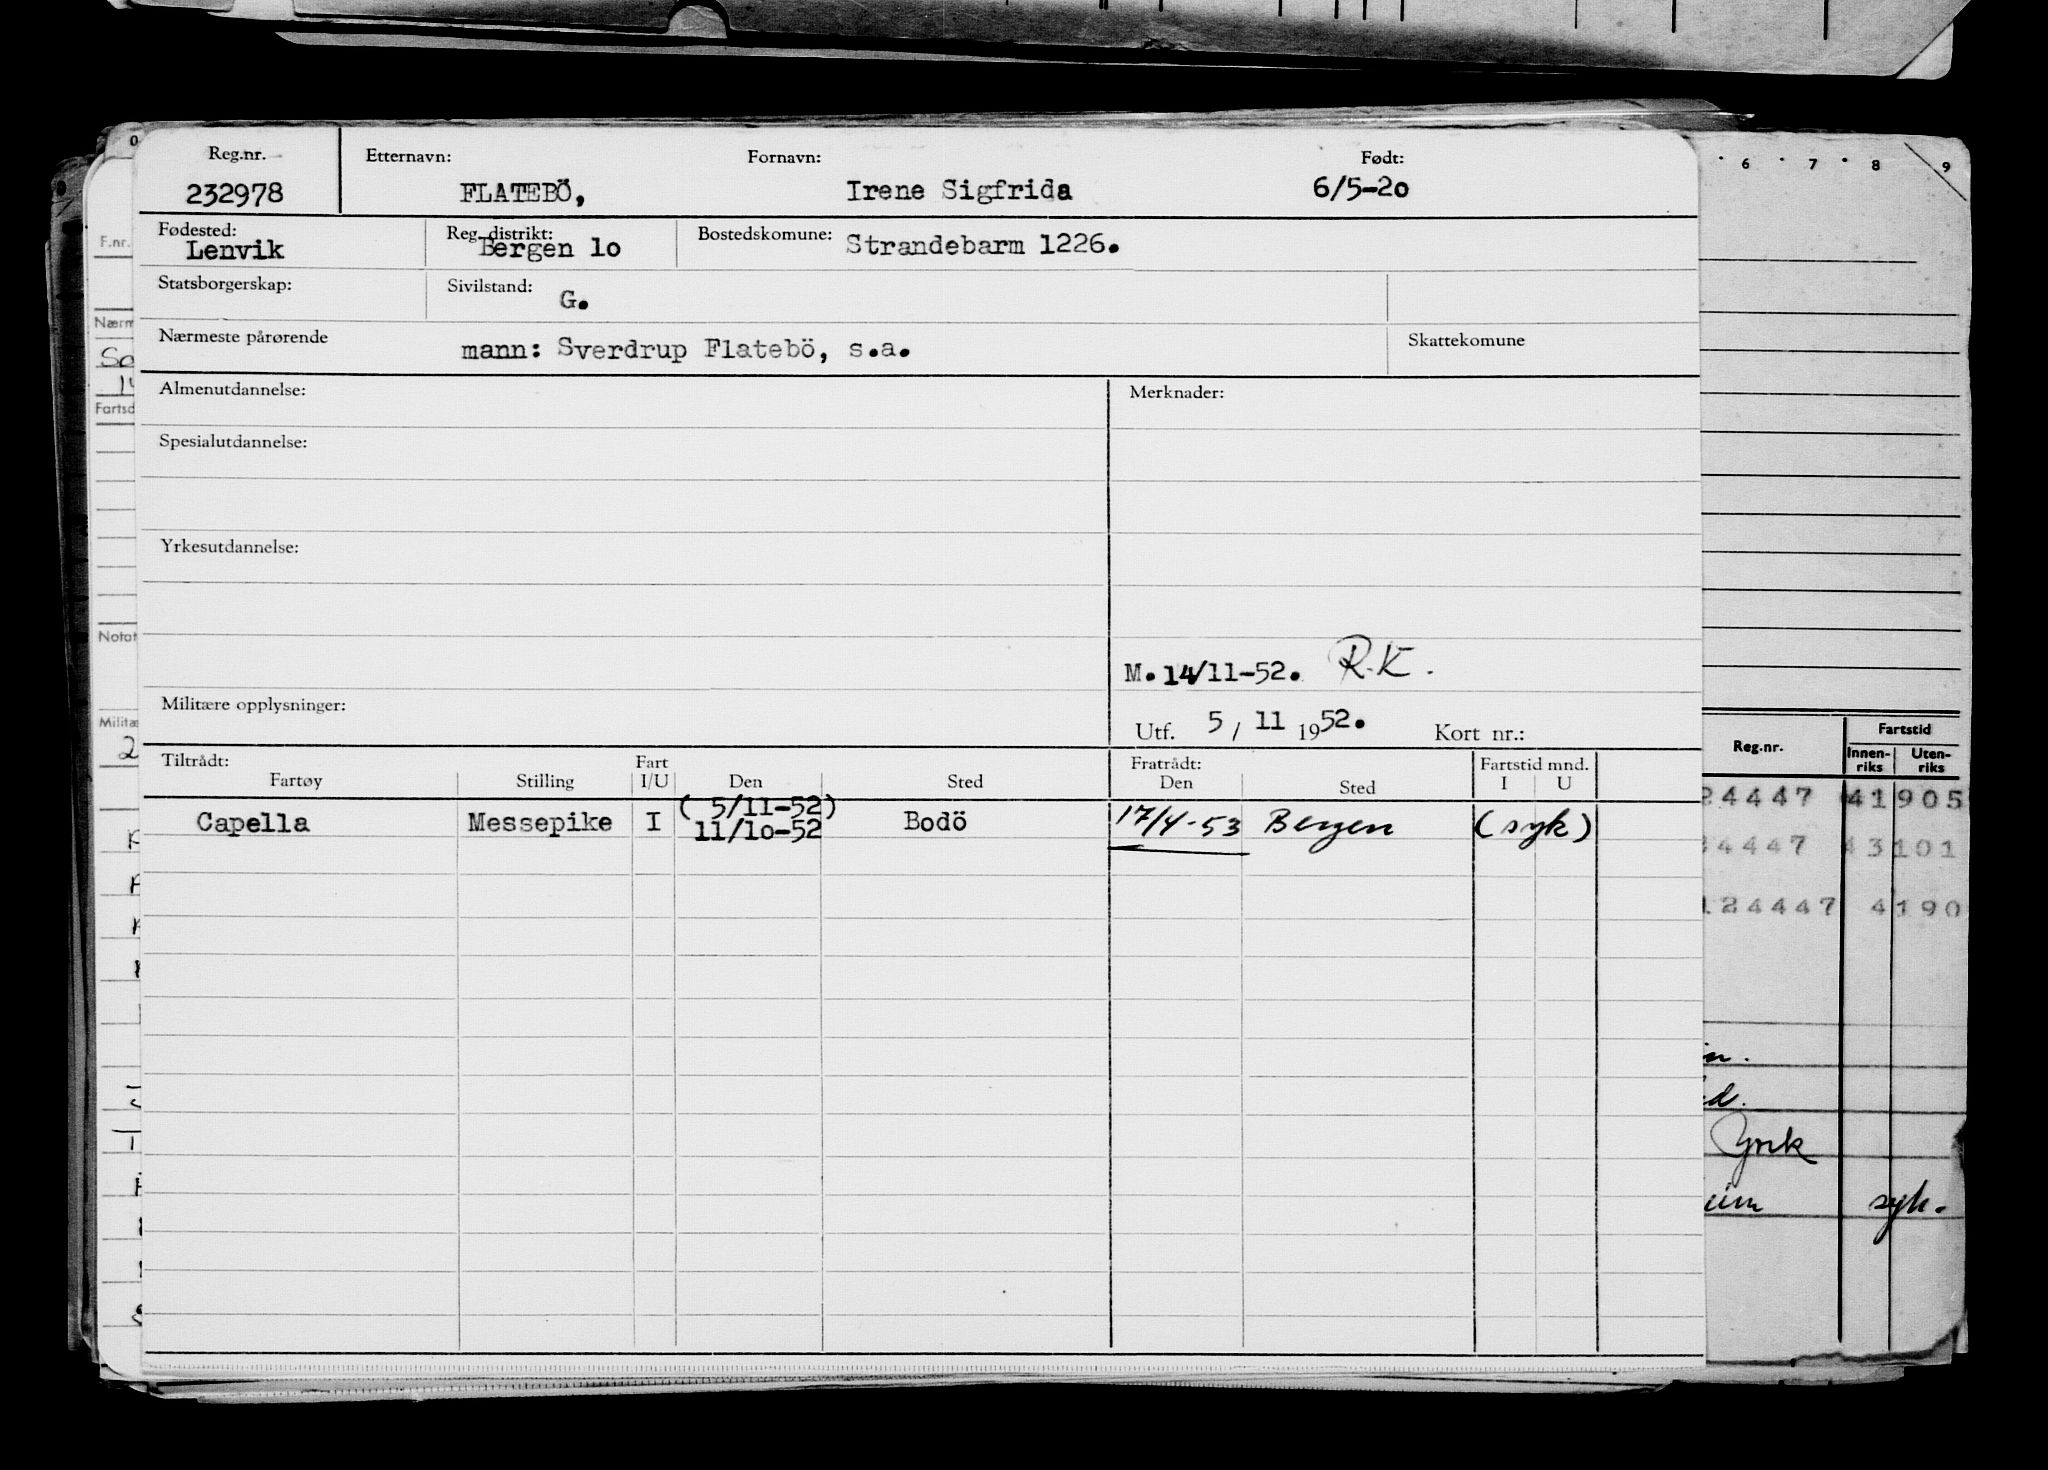 0
6 7 8 9
Reg.nr. Etternavn: Fornavn: Født:
232978 FLATEBÖ, Irene Sigfrida 6/5-20
Fødested: Reg. distrikt: Bostedskomune:
Lenvik Bergen 10 Strandebarm 1226.
F.nr.
Statsborgerskap: Sivilstand: G.
Nærmeste pårørende mann: Sverdrup Flatebö, s.a. Skattekomune
Almenutdannelse: Merknader:
Spesialutdannelse:
Yrkesutdannelse:
M.14/11-52. R.K.
Militære opplysninger:
Utf. 5 / 11 1952. Kort nr.:
Tiltrådt: Fart Fratrådt: Fartstid mnd.
Fartøy Stilling I/U Den Sted Den Sted I U
(5/11-52)
Capella Messepike I 11/10-52 Bodö 17/4-53 Bergen (syk)
Reg.nr. Fartstid
Innen-riks Uten-riks
24447 41905
4447 43101
124447 4190
York
syk.